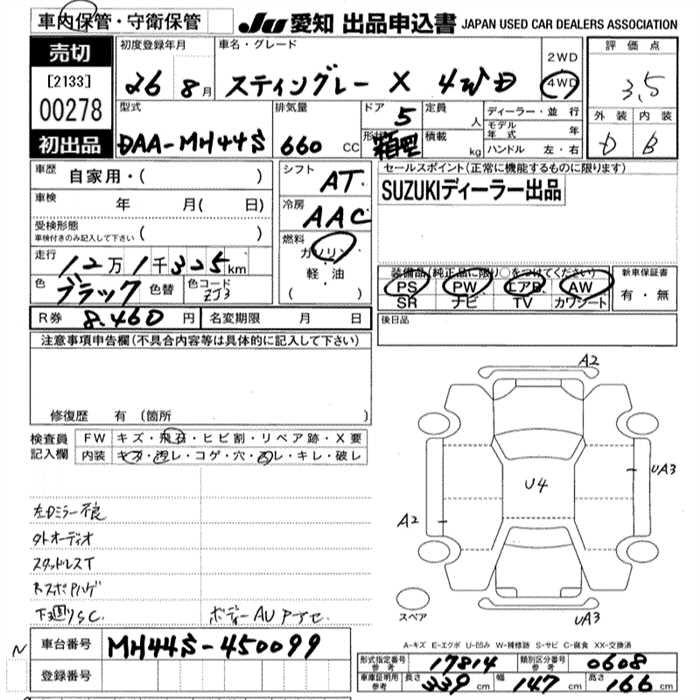 車内保管・守衛保管
JU 愛知 出品申込書 JAPAN USED CAR DEALERS ASSOCIATION
売切
[2133]
00278
初出品
初度登録年月
26 8月
車名・グレード
スティングレー X 4WD
2WD
4WD
評価点
3.5
外装 内装
D B
型式
DAA-MH44S
排気量
660 CC
ドア
5
形状
箱型
定員
人
積載
kg
ディーラー・並行
モデル年式 年
ハンドル 左・右
車歴
自家用・( )
車検
年 月( 日)
受検形態
車検付きのみ記入して下さい ( )
走行
12万1千325km
色
ブラック
色替
色コード
ZJ3
シフト
AT
冷房
AAC
燃料
ガソリン
軽・油
( )
セールスポイント(正常に機能するものに限ります)
SUZUKIディーラー出品
装備品(純正品に限り○をつけてください)
PS PW エアB AW
SR ナビ TV カワシート
新車保証書
有・無
R券 8,460 円
名変期限 月 日
後日品
注意事項申告欄(不具合内容等は具体的に記入して下さい)
修復歴 有(箇所 )
検査員記入欄
FW キズ・飛石・ヒビ割・リペア跡・X要
内装 キズ・汚レ・コゲ・穴・スレ・キレ・破レ
左Dミラー不良
外オーディオ
スタッドレスT
下廻りSC
ボディーAU
A2
U4
UA3
A2
UA3
スペア
A-キズ E-エクボ U-凹み W-補修跡 S-サビ C-腐食 XX-交換済
N
車台番号 MH44S-450099
登録番号
形式指定番号 参考 17814
類別区分番号 参考 0608
車庫証明用 参考 長さ 339 cm 幅 147 cm 高さ 166 cm